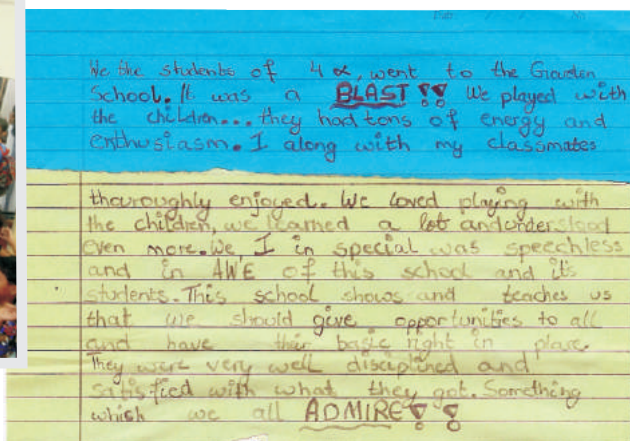 We the students of 4 α, went to the Garden
School. It was a BLAST!! We played with
the children... they had tons of energy and
enthusiasm. I along with my classmates
thouroughly enjoyed. We loved playing with
the children, we learned a lot and understood
even more. We I in special was speechless
and in AWE of this school and its
students. This school shows and teaches us
that we should give opportunities to all
and have their basic right in place.
They were very well disciplined and
satisfied with what they got. Something
which we all ADMIRE!!